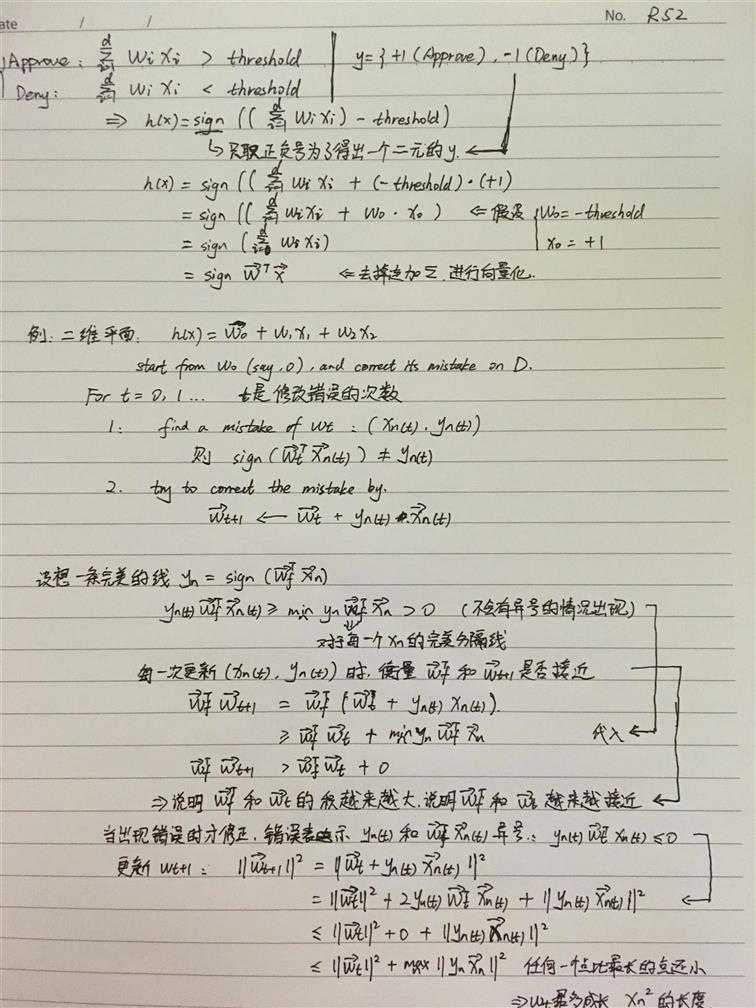 ate / / No. R52
Approve: Σ_{i=1}^{d} wi xi > threshold | y = { +1 (Approve), -1 (Deny) }
Deny: Σ_{i=1}^{d} wi xi < threshold
⇒ h(x) = sign (( Σ_{i=1}^{d} wi xi ) - threshold)
↳ 只取正负号为了得出一个二元的y. ←
h(x) = sign (( Σ_{i=1}^{d} wi xi + (-threshold)·(+1)
= sign (( Σ_{i=1}^{d} wi xi + w0 · x0 ) ⇐ 假设 { w0 = -threshold
= sign ( Σ_{i=0}^{d} wi xi ) x0 = +1
= sign w⃗ᵀ x⃗ ⇐ 去掉连加Σ, 进行向量化.
例: 二维平面. h(x) = w⃗0 + w1x1 + w2x2
start from w0 (say, 0), and correct its mistake on D.
For t = 0, 1 ... t是修改错误的次数
1: find a mistake of wt : (xn(t), yn(t))
则 sign (w⃗tᵀ x⃗n(t)) ≠ yn(t)
2. try to correct the mistake by.
w⃗t+1 ← w⃗t + yn(t) x⃗n(t)
设想一条完美的线 yn = sign (w⃗fᵀ x⃗n)
yn(t) w⃗fᵀ x⃗n(t) ≥ min yn w⃗fᵀ x⃗n > 0 (不会有异号的情况出现)
对于每一个xn的完美分隔线
每一次更新 (xn(t), yn(t)) 时, 衡量 w⃗fᵀ 和 w⃗t+1 是否接近
w⃗fᵀ w⃗t+1 = w⃗fᵀ (w⃗t + yn(t) xn(t)).
≥ w⃗fᵀ w⃗t + min yn w⃗fᵀ x⃗n 代入 ←
w⃗fᵀ w⃗t+1 > w⃗fᵀ w⃗t + 0
⇒ 说明 w⃗fᵀ 和 w⃗t 的积越来越大, 说明 w⃗fᵀ 和 w⃗t 越来越接近 ←
当出现错误时才修正, 错误表示 yn(t) 和 w⃗tᵀ x⃗n(t) 异号: yn(t) w⃗tᵀ xn(t) ≤ 0
更新 wt+1: ||w⃗t+1||² = ||w⃗t + yn(t) x⃗n(t)||²
= ||w⃗t||² + 2yn(t) w⃗tᵀ x⃗n(t) + ||yn(t) x⃗n(t)||² ←
≤ ||w⃗t||² + 0 + ||yn(t) x⃗n(t)||²
≤ ||w⃗t||² + max ||yn x⃗n||² 任何一个点比最长的点还小
⇒ wt 最多成长 xn² 的长度